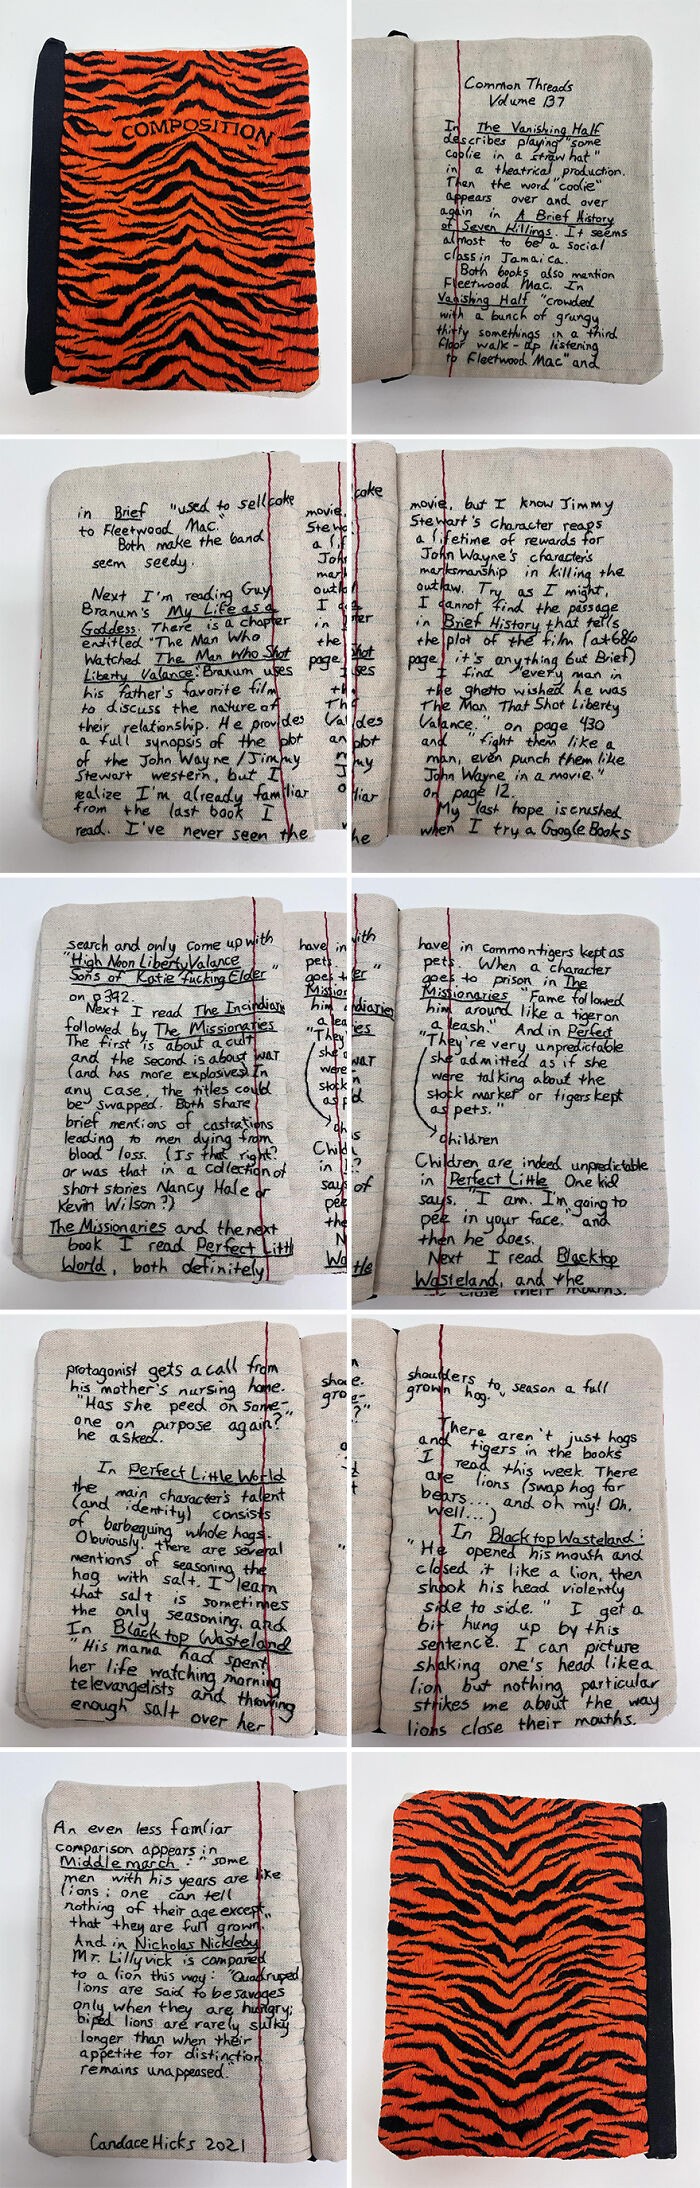 COMPOSITION
Common Threads
Volume 137
In The Vanishing Half
describes playing "some
coolie in a straw hat"
in a theatrical production.
Then the word "coolie"
appears over and over
again in A Brief History
of Seven Killings. It seems
almost to be a social
class in Jamaica.
Both books also mention
Fleetwood Mac. In
Vanishing Half "crowded
with a bunch of grungy
thirty somethings in a third
floor walk-up listening
to Fleetwood Mac" and
in Brief "used to sell coke
to Fleetwood Mac."
Both make the band
seem seedy.
Next I'm reading Guy
Branum's My Life as a
Goddess. There is a chapter
entitled "The Man Who
Watched The Man Who Shot
Liberty Valance." Branum uses
his father's favorite film
to discuss the nature of
their relationship. He provides
a full synopsis of the plot
of the John Wayne/Jimmy
Stewart western, but I
realize I'm already familiar
from the last book I
read. I've never seen the
movie, but I know Jimmy
Stewart's character reaps
a lifetime of rewards for
John Wayne's character's
marksmanship in killing the
outlaw. Try as I might,
I cannot find the passage
in Brief History that tells
the plot of the film (at 686
page it's anything but Brief)
I find "every man in
the ghetto wished he was
The Man That Shot Liberty
Valance." on page 430
and "fight them like a
man, even punch them like
John Wayne in a movie."
on page 12.
My last hope is crushed
when I try a Google Books
search and only come up with
"High Noon Liberty Valance
Sons of Katie fucking Elder"
on p392.
Next I read The Incendiaries
followed by The Missionaries
The first is about a cult
and the second is about war
(and has more explosives) In
any case, the titles could
be swapped. Both share
brief mentions of castrations
leading to men dying from
blood loss. (Is that right?
or was that in a collection of
short stories Nancy Hale or
Kevin Wilson?)
The Missionaries and the next
book I read Perfect Little
World, both definitely
have in common tigers kept as
pets. When a character
goes to prison in The
Missionaries "Fame followed
him around like a tiger on
a leash." And in Perfect
"They're very unpredictable
she admitted as if she
were talking about the
stock market or tigers kept
as pets."
children
Children are indeed unpredictable
in Perfect Little One kid
says, "I am. I'm going to
pee in your face." and
then he does.
Next I read Blacktop
Wasteland, and the
protagonist gets a call from
his mother's nursing home.
"Has she peed on some-
one on purpose again?"
he asked.
In Perfect Little World
the main character's talent
(and identity) consists
of barbequing whole hogs.
Obviously there are several
mentions of seasoning the
hog with salt. I learn
that salt is sometimes
the only seasoning, and
In Blacktop Wasteland
"His mama had spent
her life watching morning
televangelists and throwing
enough salt over her
shoulders to season a full
grown hog.
There aren't just hogs
and tigers in the books
I read this week. There
are lions (swap hog for
bears... and oh my! Oh,
well...)
In Blacktop Wasteland:
"He opened his mouth and
closed it like a lion, then
shook his head violently
side to side." I get a
bit hung up by this
sentence. I can picture
shaking one's head like a
lion but nothing particular
strikes me about the way
lions close their mouths.
An even less familiar
comparison appears in
Middlemarch: "some
men with his years are like
lions; one can tell
nothing of their age except
that they are full grown."
And in Nicholas Nickleby
Mr. Lillyvick is compared
to a lion this way: "Quadruped
lions are said to be savages
only when they are hungry;
biped lions are rarely sulky
longer than when their
appetite for distinction
remains unappeased."
Candace Hicks 2021